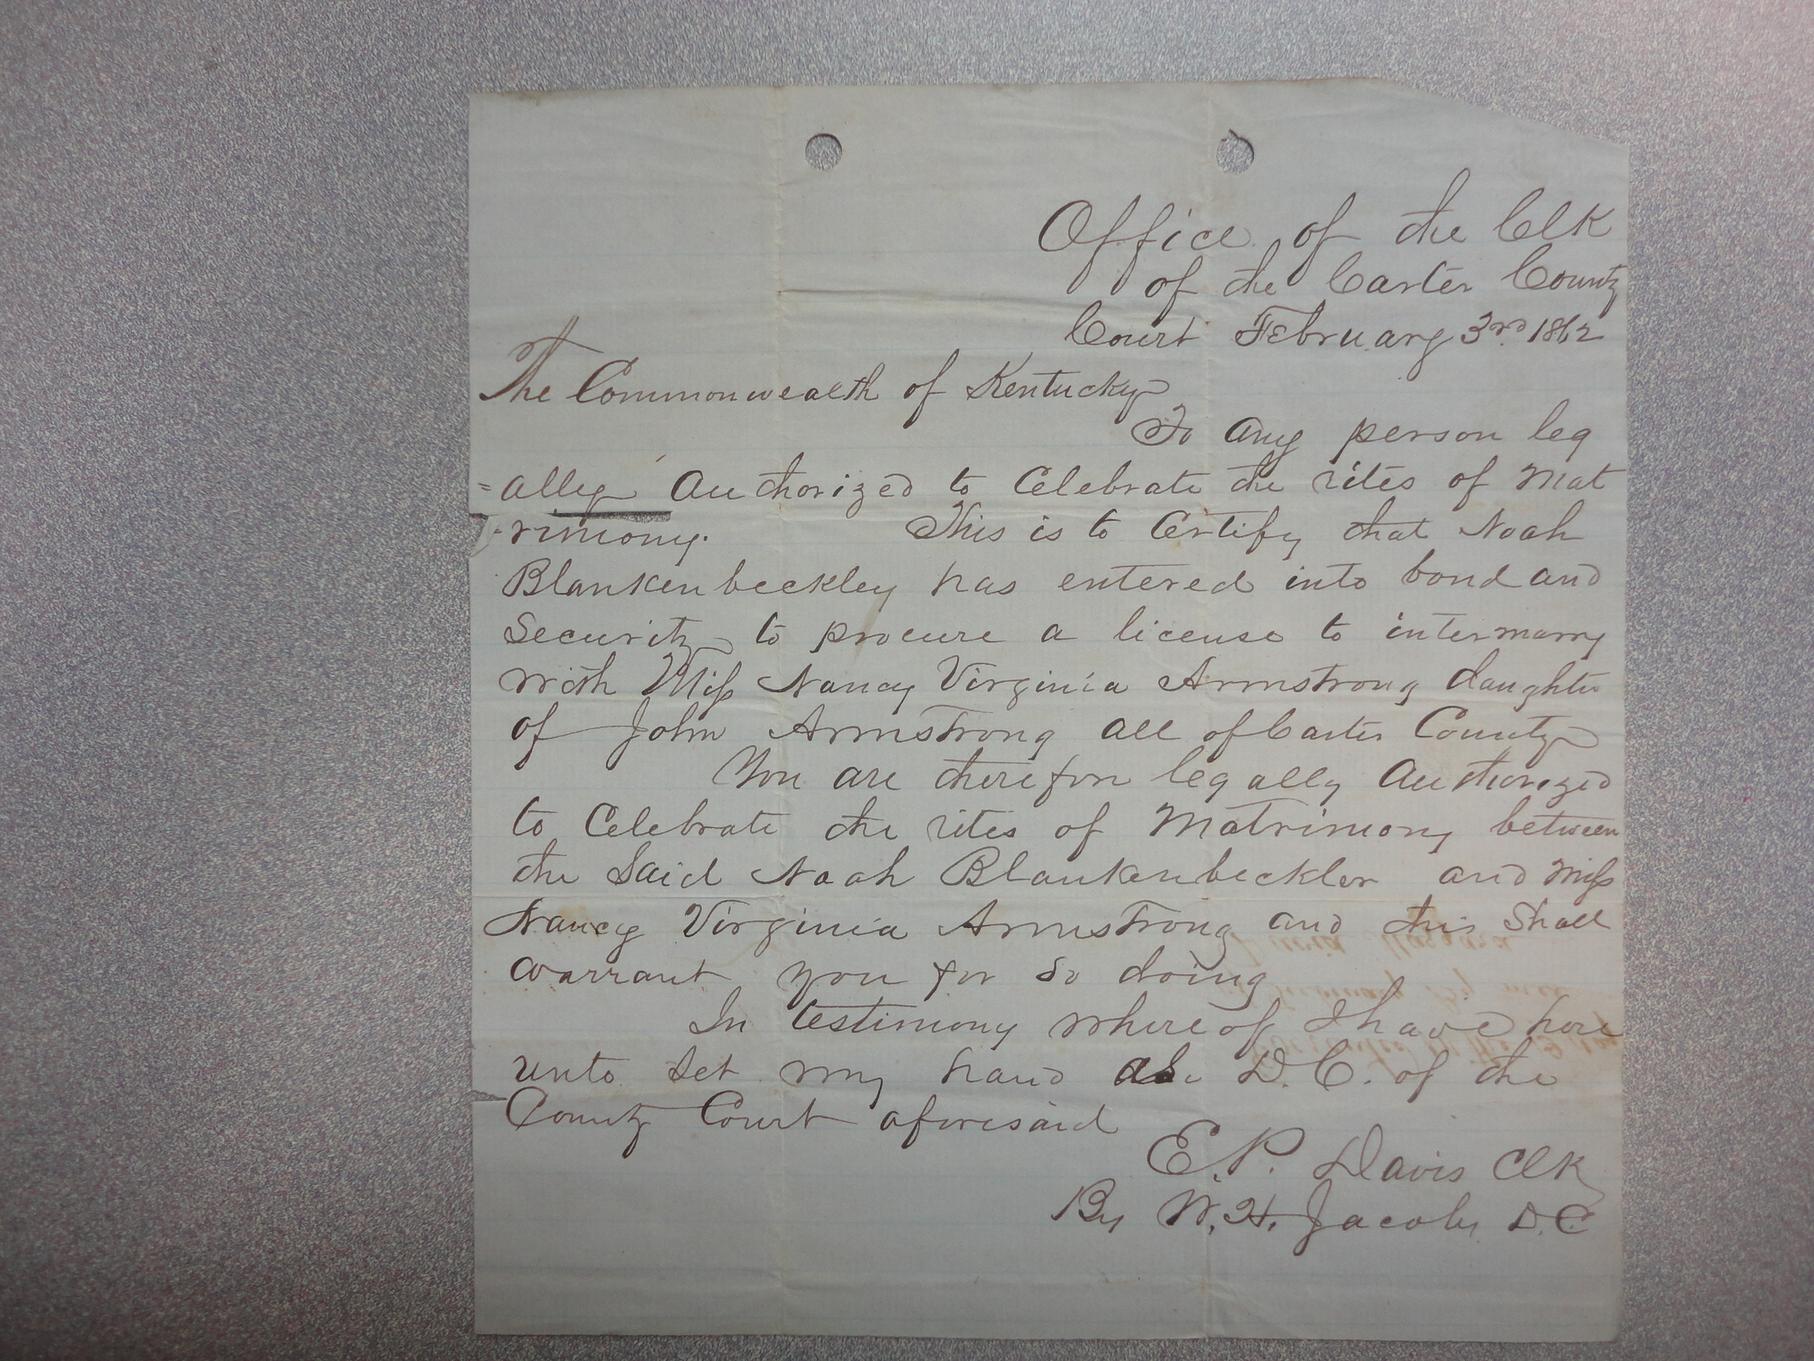 Office of the Clk
of the Carter County
Court February 3rd. 1862
The Commonwealth of Kentucky
To any person leg
=ally Authorized to Celebrate the rites of Mat
-rimony. This is to Certify that Noah
Blankenbeckley has entered into bond and
Security to procure a license to intermarry
with Miss Nancy Virginia Armstrong daughter
of John Armstrong all of Carter County
You are therefore legally Authorized
to Celebrate the rites of Matrimony between
the Said Noah Blankenbeckler and Miss
Nancy Virginia Armstrong and this Shall
warrant you for so doing
In testimony where of I have here
unto Set my hand as D.C. of the
County Court aforesaid
E.P. Davis Clk
By W.H. Jacoby D.C